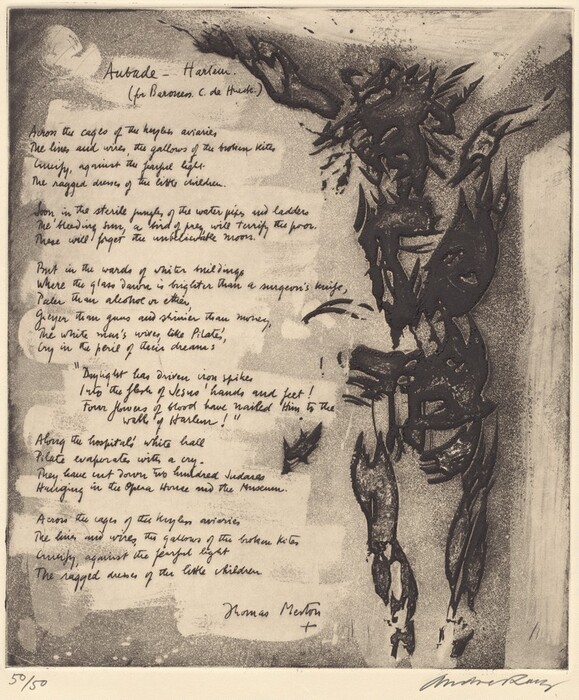 Aubade – Harlem.
(for Baroness C. de Hueck.)
Across the cages of the keyless aviaries
The lines and wires, the gallows of the broken kites
Crucify, against the fearful light
The ragged dresses of the little children.
Soon in the sterile jungles of the water pipes and ladders
The bleeding sun, a bird of prey, will terrify the poor.
These will forget the unbelievable moon.
But in the wards of whiter buildings
Where the glass dawn is brighter than a surgeon's knife,
Paler than alcohol or ether,
Greyer than guns and shinier than money,
The white man's wives, like Pilates',
Cry in the peril of their dreams:
"Daylight has driven iron spikes
Into the flesh of Jesus' hands and feet!
Four flowers of blood have nailed Him to the
walls of Harlem!"
Along the hospitals' white hall
Pilate evaporates with a cry.
They have cut down two hundred Judases
Hanging in the Opera House and the Museum.
Across the cages of the keyless aviaries
The lines and wires, the gallows of the broken kites
Crucify, against the fearful light
The ragged dresses of the little children
Thomas Merton
+
50/50
Andre Racz